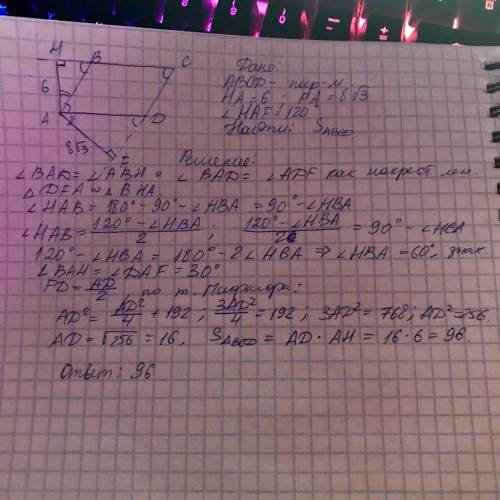 H B C
6
A D
8√3
F
Дано:
ABCD - пар-м.
HA = 6, FA = 8√3
∠HAF = 120°
Найти: SABCD
Решение:
∠BAD = ∠ABH и ∠BAD = ∠ADF как накрест леж.
△DFA ∾ △BHA
∠HAB = 180° - 90° - ∠HBA = 90° - ∠HBA
∠HAB = (120° - ∠HBA)/2 ; (120° - ∠HBA)/2 = 90° - ∠HBA
120° - ∠HBA = 180° - 2∠HBA ⇒ ∠HBA = 60°, знач.
∠BAH = ∠DAF = 30°
FD = AD/2, по т. Пифагора:
AD² = AD²/4 + 192 ; 3AD²/4 = 192 ; 3AD² = 768; AD² = 256.
AD = √256 = 16, SABCD = AD · AH = 16 · 6 = 96.
Ответ: 96